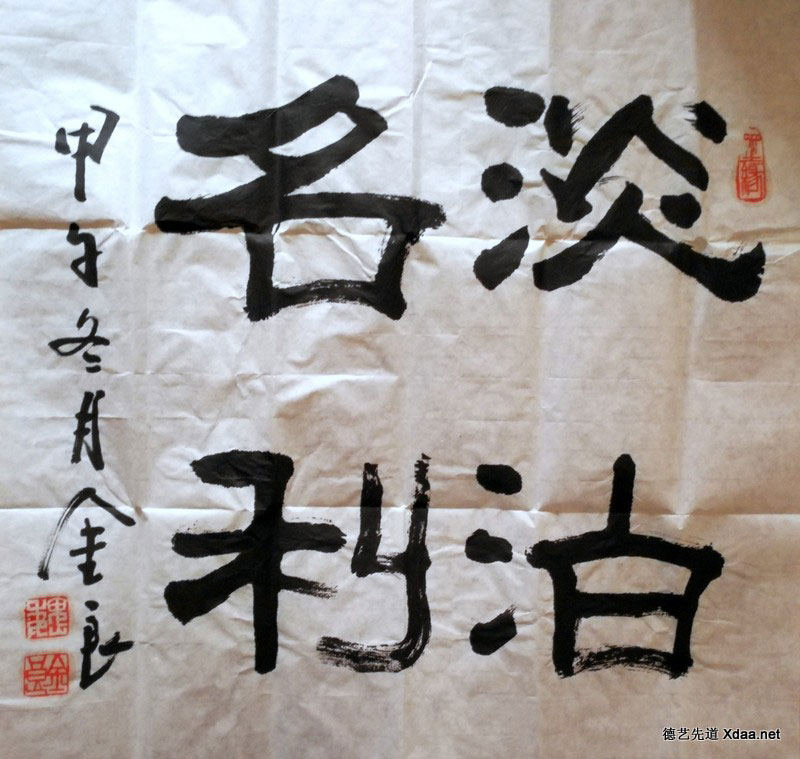 淡泊
名利
甲午冬月金良
德艺先道 Xdaa.net